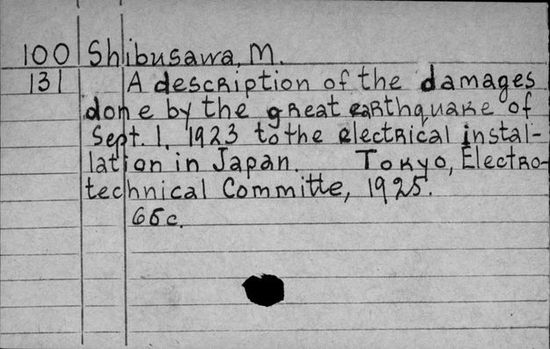 100 Shibusawa, M.
131 A description of the damages
done by the great earthquake of
Sept. 1, 1923 to the electrical instal-
lation in Japan. Tokyo, Electro-
technical Committe, 1925.
66c.